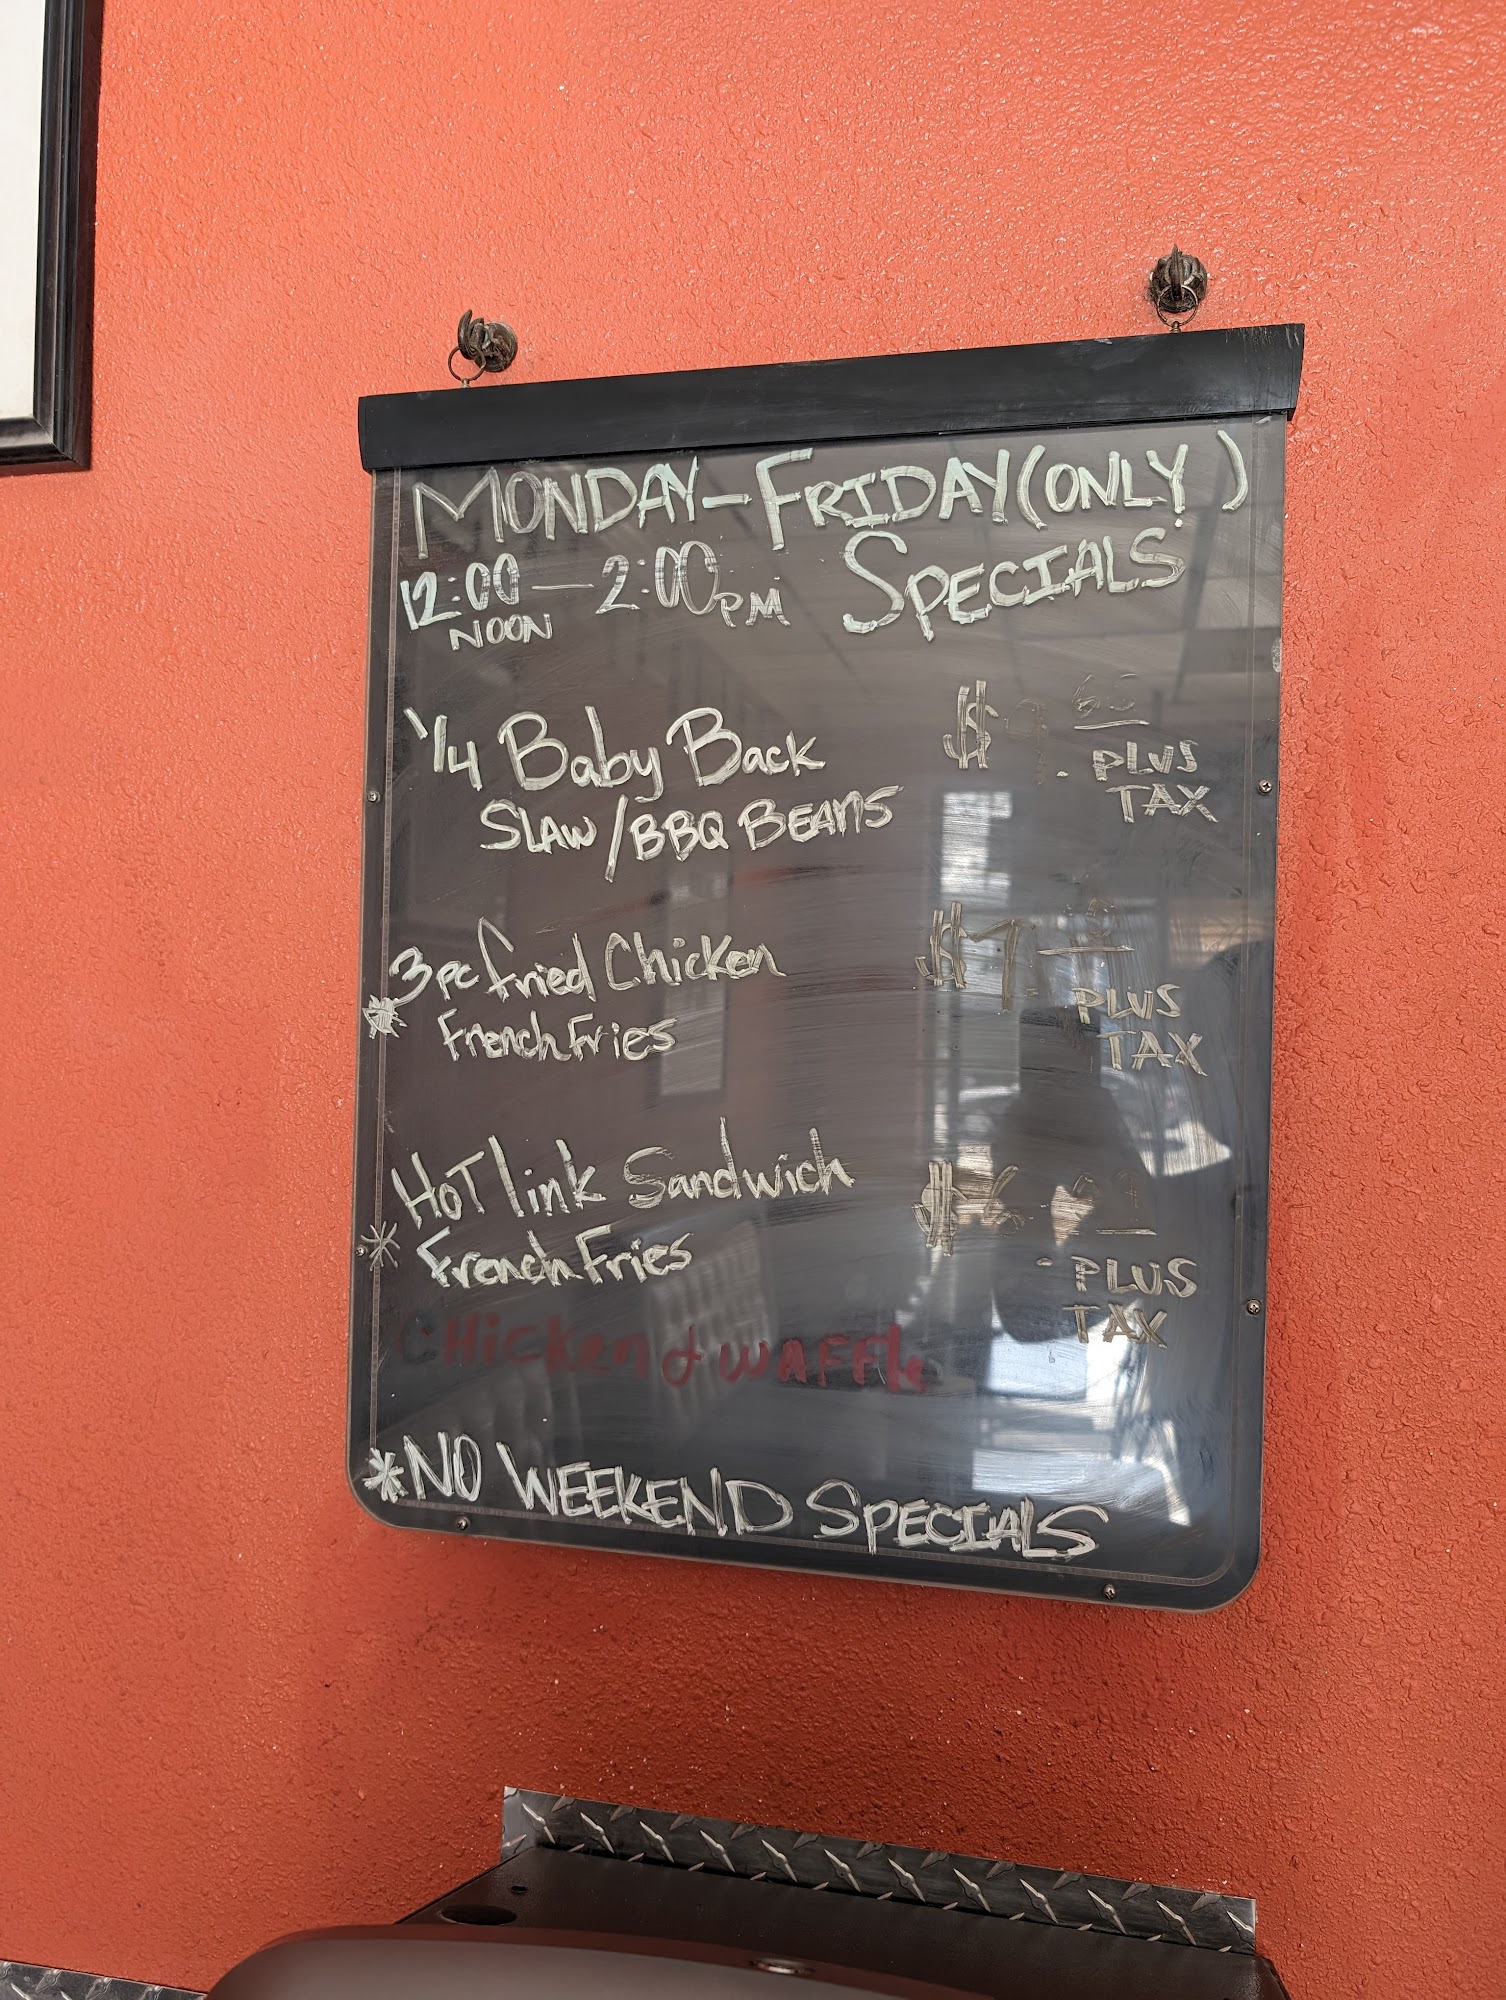 MONDAY-FRIDAY (ONLY)
12:00 - 2:00 PM SPECIALS
NOON
1/4 Baby Back $
PLUS
SLAW/BBQ BEANS TAX
3 pc fried Chicken $7.
PLUS
* French Fries TAX
HOT link Sandwich $6.
* French Fries PLUS
TAX
CHicken & WAFFle
*NO WEEKEND SPECIALS